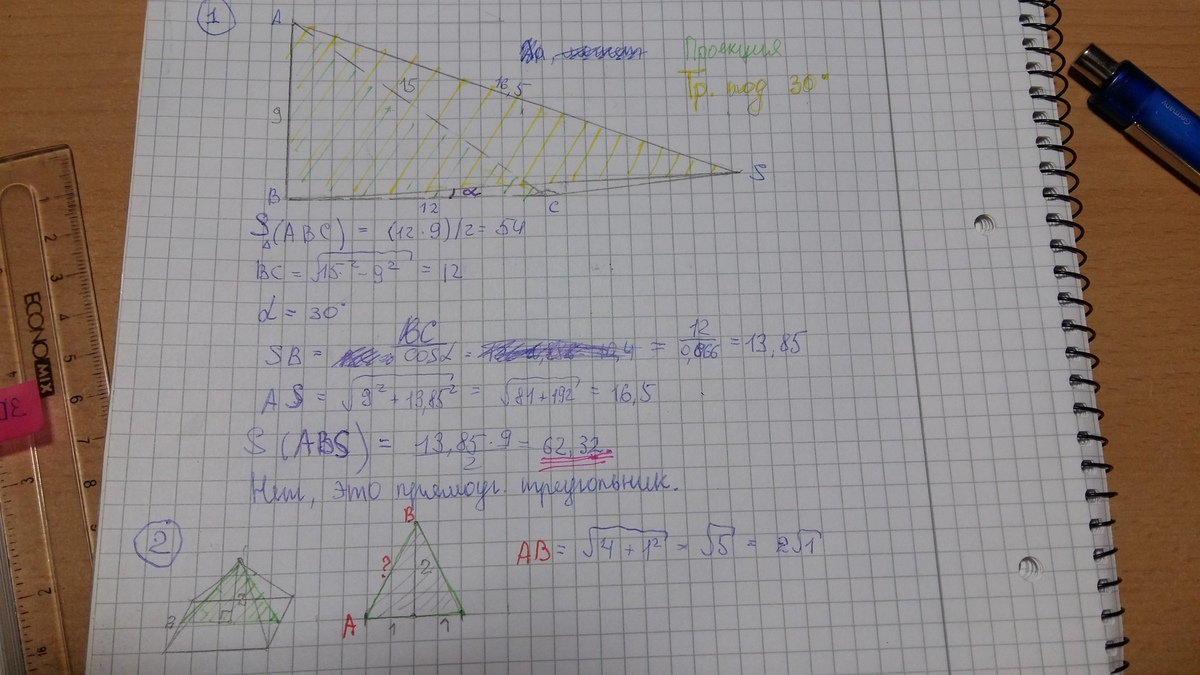 1
A
15
16,5
Проекция
Тр. под 30°
9
S
B
12
α
C
S△(ABC) = (12·9)/2 = 54
BC = √15² - 9² = 12
α = 30°
SB = BC / cosα = = 12 / 0,866 = 13,85
AS = √9² + 13,85² = √81+192 = 16,5
S (ABS) = 13,85·9 / 2 = 62,32.
Нет, это прямоуг. треугольник.
2
B
?
2
A
1
1
AB = √4 + 1² = √5 = 2√1
ECONOMIX
Germany